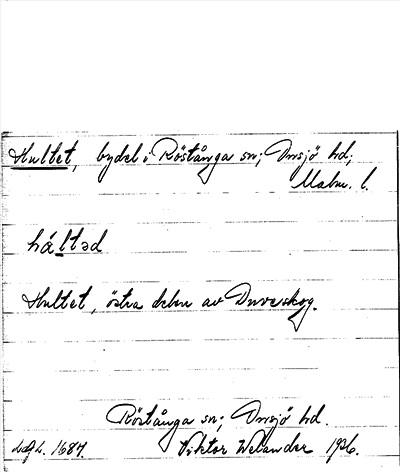 Hultet, bydel i Röstånga sn; Onsjö hd;
Malm. l.
húltəd
Hultet, östra delen av Duveskog.
Röstånga sn; Onsjö hd.
1687. Viktor Welander 1936.